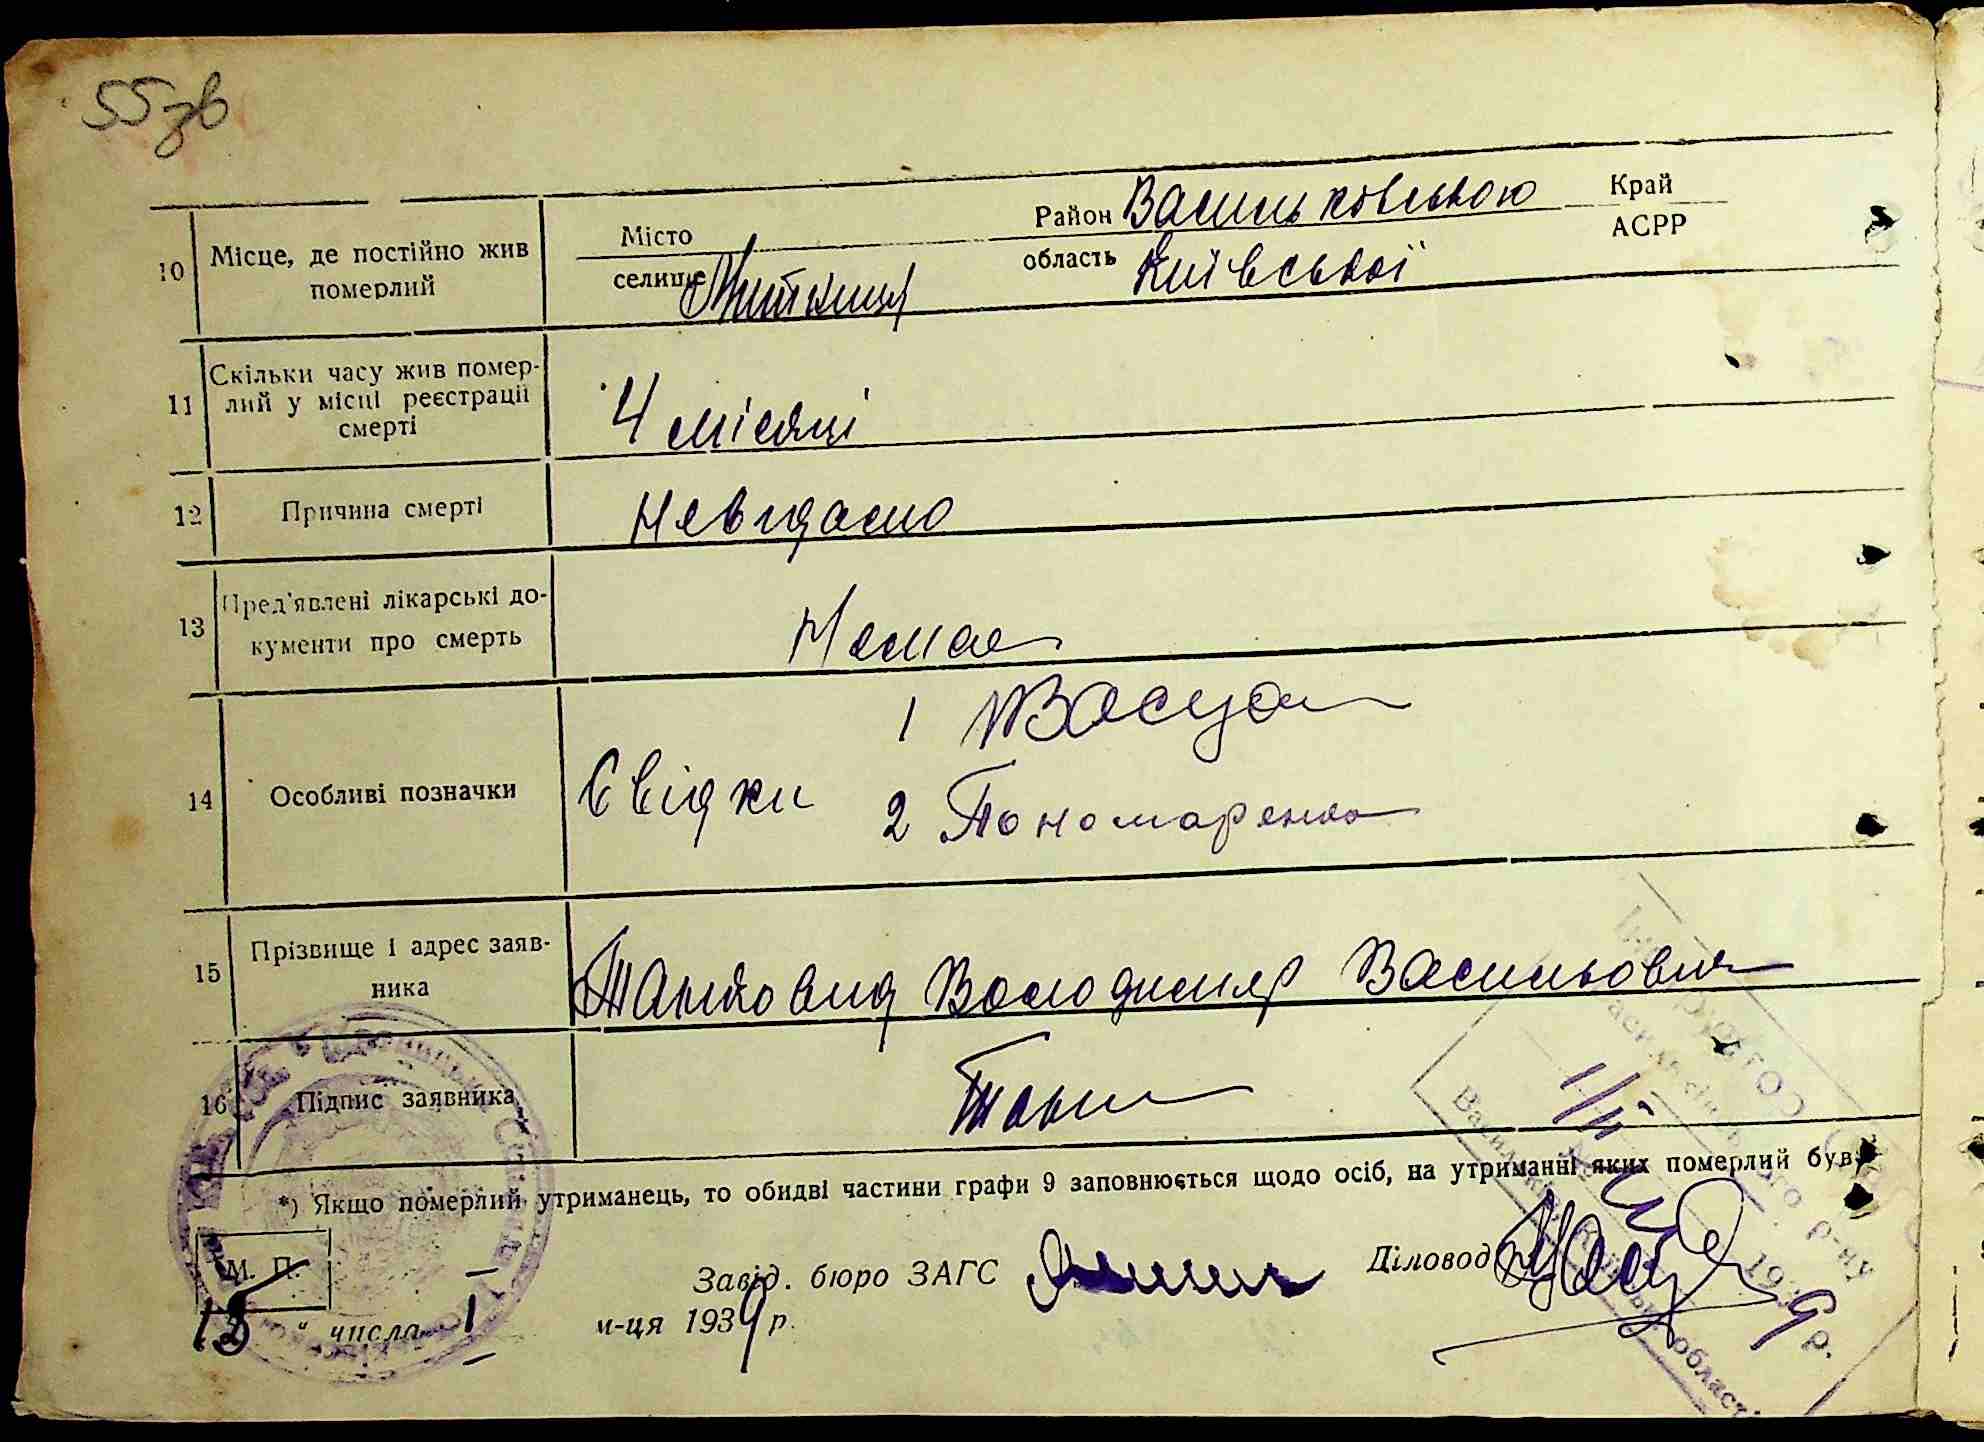 55 зв
10 Місце, де постійно жив померлий
Місто
селище Митниця
Район Васильковського
область Київської
Край
АСРР
11 Скільки часу жив помер-
лий у місці реєстрації
смерті
4 місяці
12 Причина смерті
Невидомо
13 Пред'явлені лікарські до-
кументи про смерть
Немае
14 Особливі позначки
Свідки
1
2 Пономаренко
15 Прізвище і адрес заяв-
ника
Володимир Васильович
16 Підпис заявника
*) Якщо померлий утриманець, то обидві частини графи 9 заповнюється щодо осіб, на утриманні яких померлий був.
М. П.
Завід. бюро ЗАГС
Діловод
13 " числа 1 м-ця 1939 р.
1/II
9 р.
області